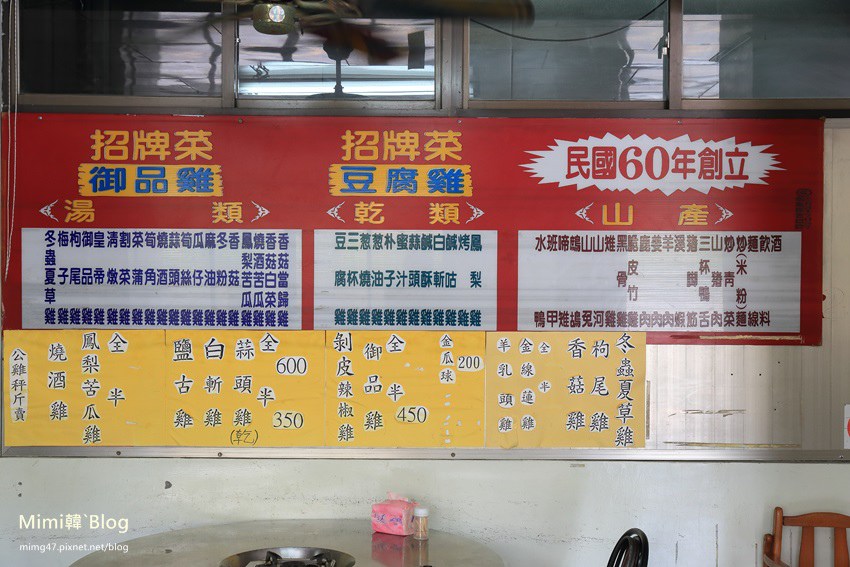 招牌菜
御品雞
湯類
冬蟲夏草雞
梅子雞
枸尾雞
御品雞
皇帝雞
清燉雞
割菜雞
菜蒲雞
筍角雞
燒酒雞
蒜頭雞
筍絲雞
瓜仔雞
麻油雞
冬粉雞
香菇雞
鳳梨苦瓜雞
燒酒苦瓜雞
香菇白菜雞
香菇當歸雞
招牌菜
豆腐雞
乾類
豆腐雞
三杯雞
蔥燒雞
蔥油雞
朴子雞
蜜汁雞
蒜頭雞
鹹酥雞
白斬雞
鹹咕雞
烤雞
鳳梨雞
民國60年創立
山產
水鴨
班甲
山兔
山河
羊肉
溪蝦
三杯鴨
山豬肉
炒青菜
麵線
飲料
公雞秤斤賣
燒酒雞
鳳梨苦瓜雞
全 半
鹽古雞
白斬雞
蒜頭雞(乾)
全 600
半 350
剝皮辣椒雞
御品雞
全 半
450
金瓜球 200
羊乳頭雞
金線蓮雞
全 半
香菇雞
枸尾雞
冬蟲夏草雞
Mimi韓`Blog
mimg47.pixnet.net/blog